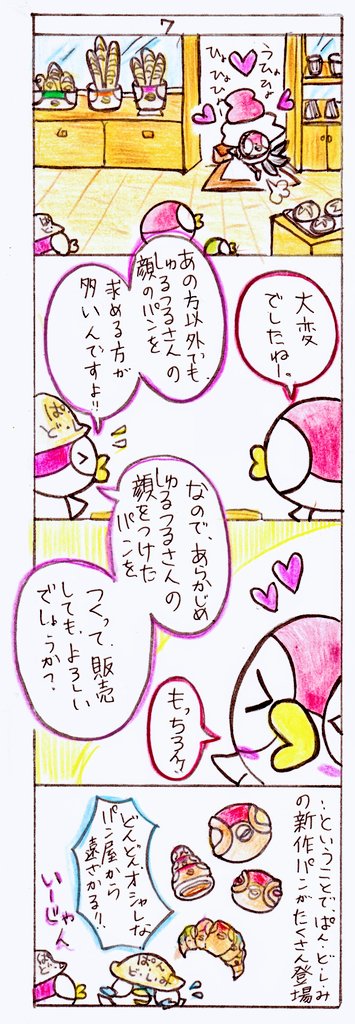 7
うひょひょ
ひょひょひょ
大変
でしたねー。
あの方以外でも、
しゅるつるさんの
顔のパンを
求める方が
多いんですよ!!
ぱん
ど
なので、あらかじめ
しゅるつるさんの
顔をつけた
パンを
つくって、販売
しても、よろしい
でしょうか?
もっちろん
…ということで、ぱん・ど・し・み
の新作パンがたくさん登場
どんどんオシャレな
パン屋から
遠ざかる!!
いーじゃん